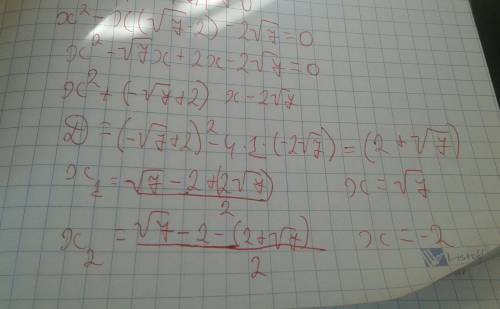 x² - x(√7 - 2) - 2√7 = 0
x² - √7x + 2x - 2√7 = 0
x² + (-√7 + 2) x - 2√7
D = (-√7 + 2)² - 4·1·(-2√7) = (2 + √7)
x₁ = (√7 - 2 + (2√7))/2 x = √7
x₂ = (√7 - 2 - (2 + √7))/2 x = -2